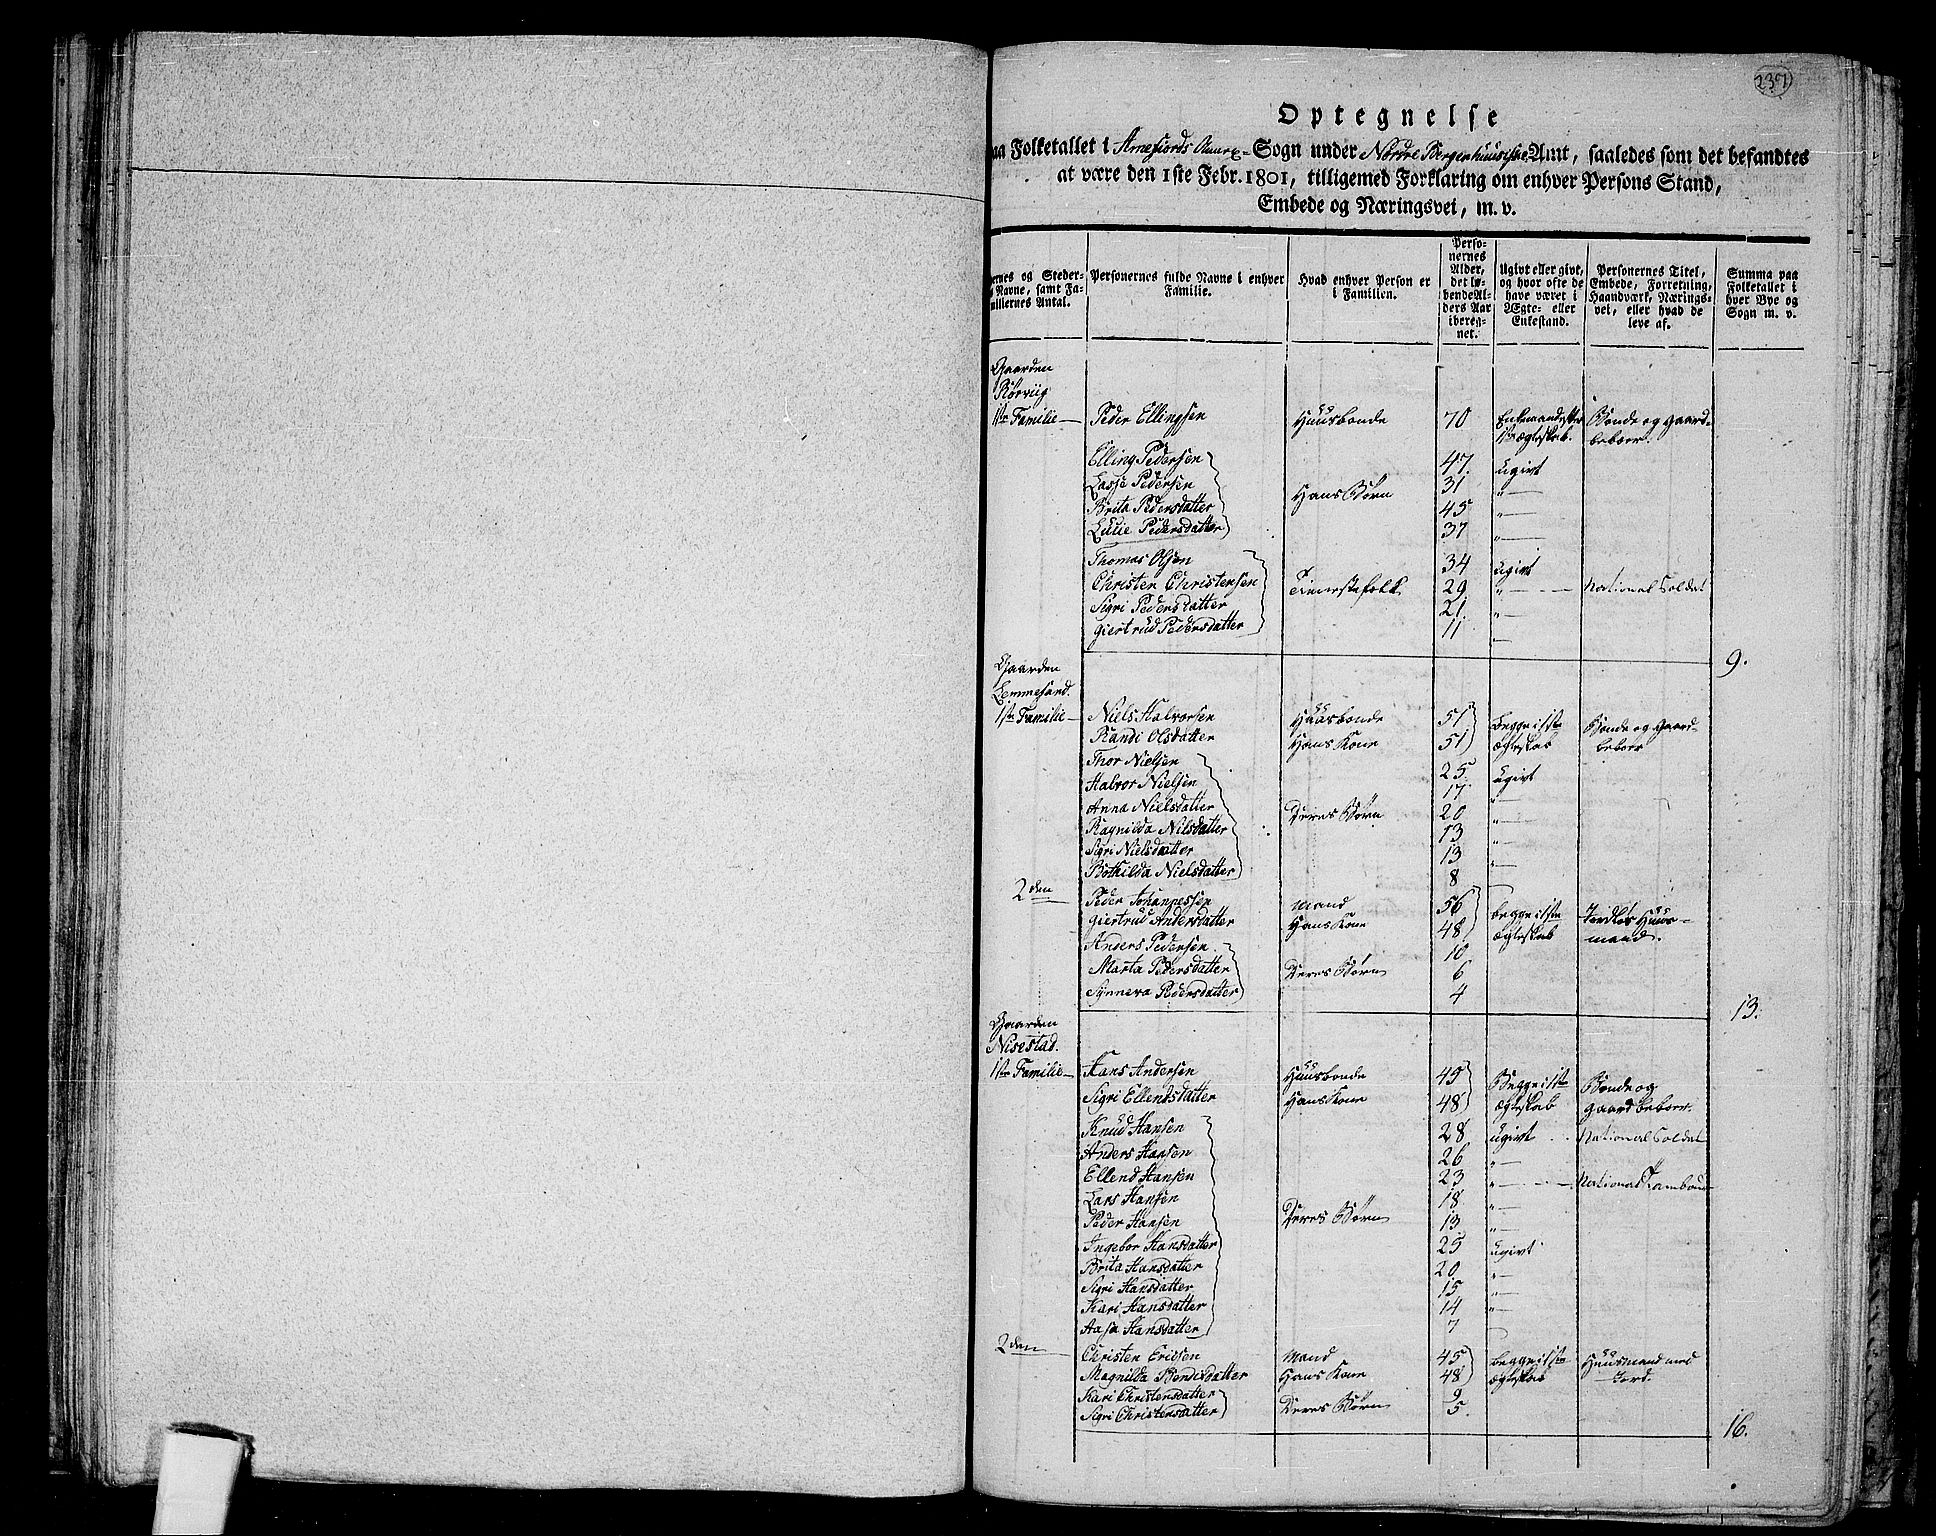 237
Optegnelse
aa Folketallet i Arnefiords Annex-Sogn under Nordre Bergenhuusiske Amt, saaledes som det befandtes
at være den 1ste Febr. 1801, tilligemed Forklaring om enhver Persons Stand,
Embede og Næringsvei, m. v.
ernes og Steder-
s Navne, samt Fa-
miliernes Antal.
Personernes fulde Navne i enhver
Familie.
Hvad enhver Person er
i Familien.
Perso-
nernes
Alder,
det lø-
bende Al-
ders Aar
iberegnet.
Ugivt eller givt,
og hvor ofte de
have været i
Ægte- eller
Enkestand.
Personernes Titel,
Embede, Forretning,
Haandværk, Nærings-
vei, eller hvad de
leve af.
Summa paa
Folketallet i
hver Bye og
Sogn m. v.
Gaarden
Rørviig
1ste Familie Peder Ellingsen Huusbonde 70 Enkemand efter Bonde og Gaard-
1ste ægteskab. beboer.
Elling Pedersen 47. ugivt
Lasse Pedersen 31 "
Hans Børn
Brita Pedersdatter 45 "
Lulie Pedersdatter 37 "
Thomas Olsen 34 ugivt
Christen Christensen Tienestefolk 29 " National Soldat
Sigri Pedersdatter 21. "
Giertrud Pedersdatter 11 —
9.
Gaarden
Lemmesand.
1ste Familie Niels Halvorsen Huusbonde 51 begge i 1ste Bonde og Gaard-
Randi Olsdatter Hans Kone 51 ægteskab beboer
Thor Nielsen 25. ugivt
Halvor Nielsen 17 "
Anna Nielsdatter Deres Børn 20 "
Ragnilda Nilsdatter 13 "
Sigri Nielsdatter 13 "
Bothilda Nielsdatter 8
2den Peder Johannessen Mand 56 begge i 1ste Jordløs Huus-
Giertrud Andersdatter Hans Kone 48 ægteskab mand.
Anders Pedersen 10
Marta Pedersdatter Deres Børn 6
Synneva Pedersdatter 4
13.
Gaarden
Nisestad.
1ste Familie Hans Andersen Huusbonde 49 Begge i 1ste Bonde og
Sigri Ellendsdatter Hans Kone 48 ægteskab Gaardbeboer.
Knud Hansen 28 ugivt National Soldat
Anders Hansen 26 "
Ellend Hansen 23 " National Tambour
Lars Hansen 18 "
Peder Hansen Deres Børn 13 "
Ingebor Hansdatter 25 ugivt
Brita Hansdatter 20 "
Sigri Hansdatter 15 "
Kari Hansdatter 14 "
Aasa Hansdatter 7
2den Christen Ericsen Mand 45 begge i 1ste Huusmand med
Magnilda Bendixdatter Hans Kone 48 ægteskab Jord.
Kari Christensdatter 9
Deres Børn
Sigri Christensdatter 5.
16.